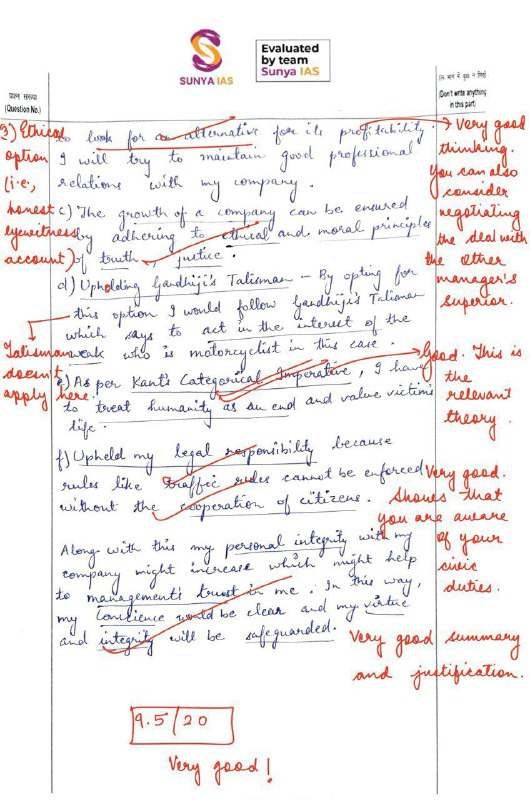 SUNYA IAS
Evaluated
by team
Sunya IAS
प्रश्न संख्या
(Question No.)
इस भाग में कुछ न लिखें
(Don't write anything
in this part)
to look for an alternative for its profitability.
I will try to maintain good professional
relations with my company.
c) The growth of a company can be ensured
by adhering to ethical and moral principles
of truth, justice.
d) Upholding Gandhiji's Talisman – By opting for
this option I would follow Gandhiji's Talisman
which says to act in the interest of the
weak who is motorcyclist in this case.
e) As per Kant's Categorical Imperative, I have
to treat humanity as an end and value victim's
life.
f) Upheld my legal responsibility because
rules like traffic rules cannot be enforced
without the cooperation of citizens.
Along with this my personal integrity with my
company might increase which might help
to management's trust in me. In this way,
my Concience would be clear and my virtue
and integrity will be safeguarded.
3) Ethical
option
(i.e.,
honest
eyewitness
account)
Talisman
doesn't
apply here.
Very good
thinking.
You can also
consider
negotiating
the deal with
the other
manager's
superior.
Good. This is
the
relevant
theory.
Very good.
Shows that
you are aware
of your
civic
duties.
Very good summary
and justification.
9.5/20
Very good!